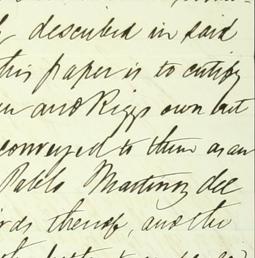 described in said
this paper is to certify
and Riggs own but
conveyed to them as an
Pablo Martinez del
thereof, another